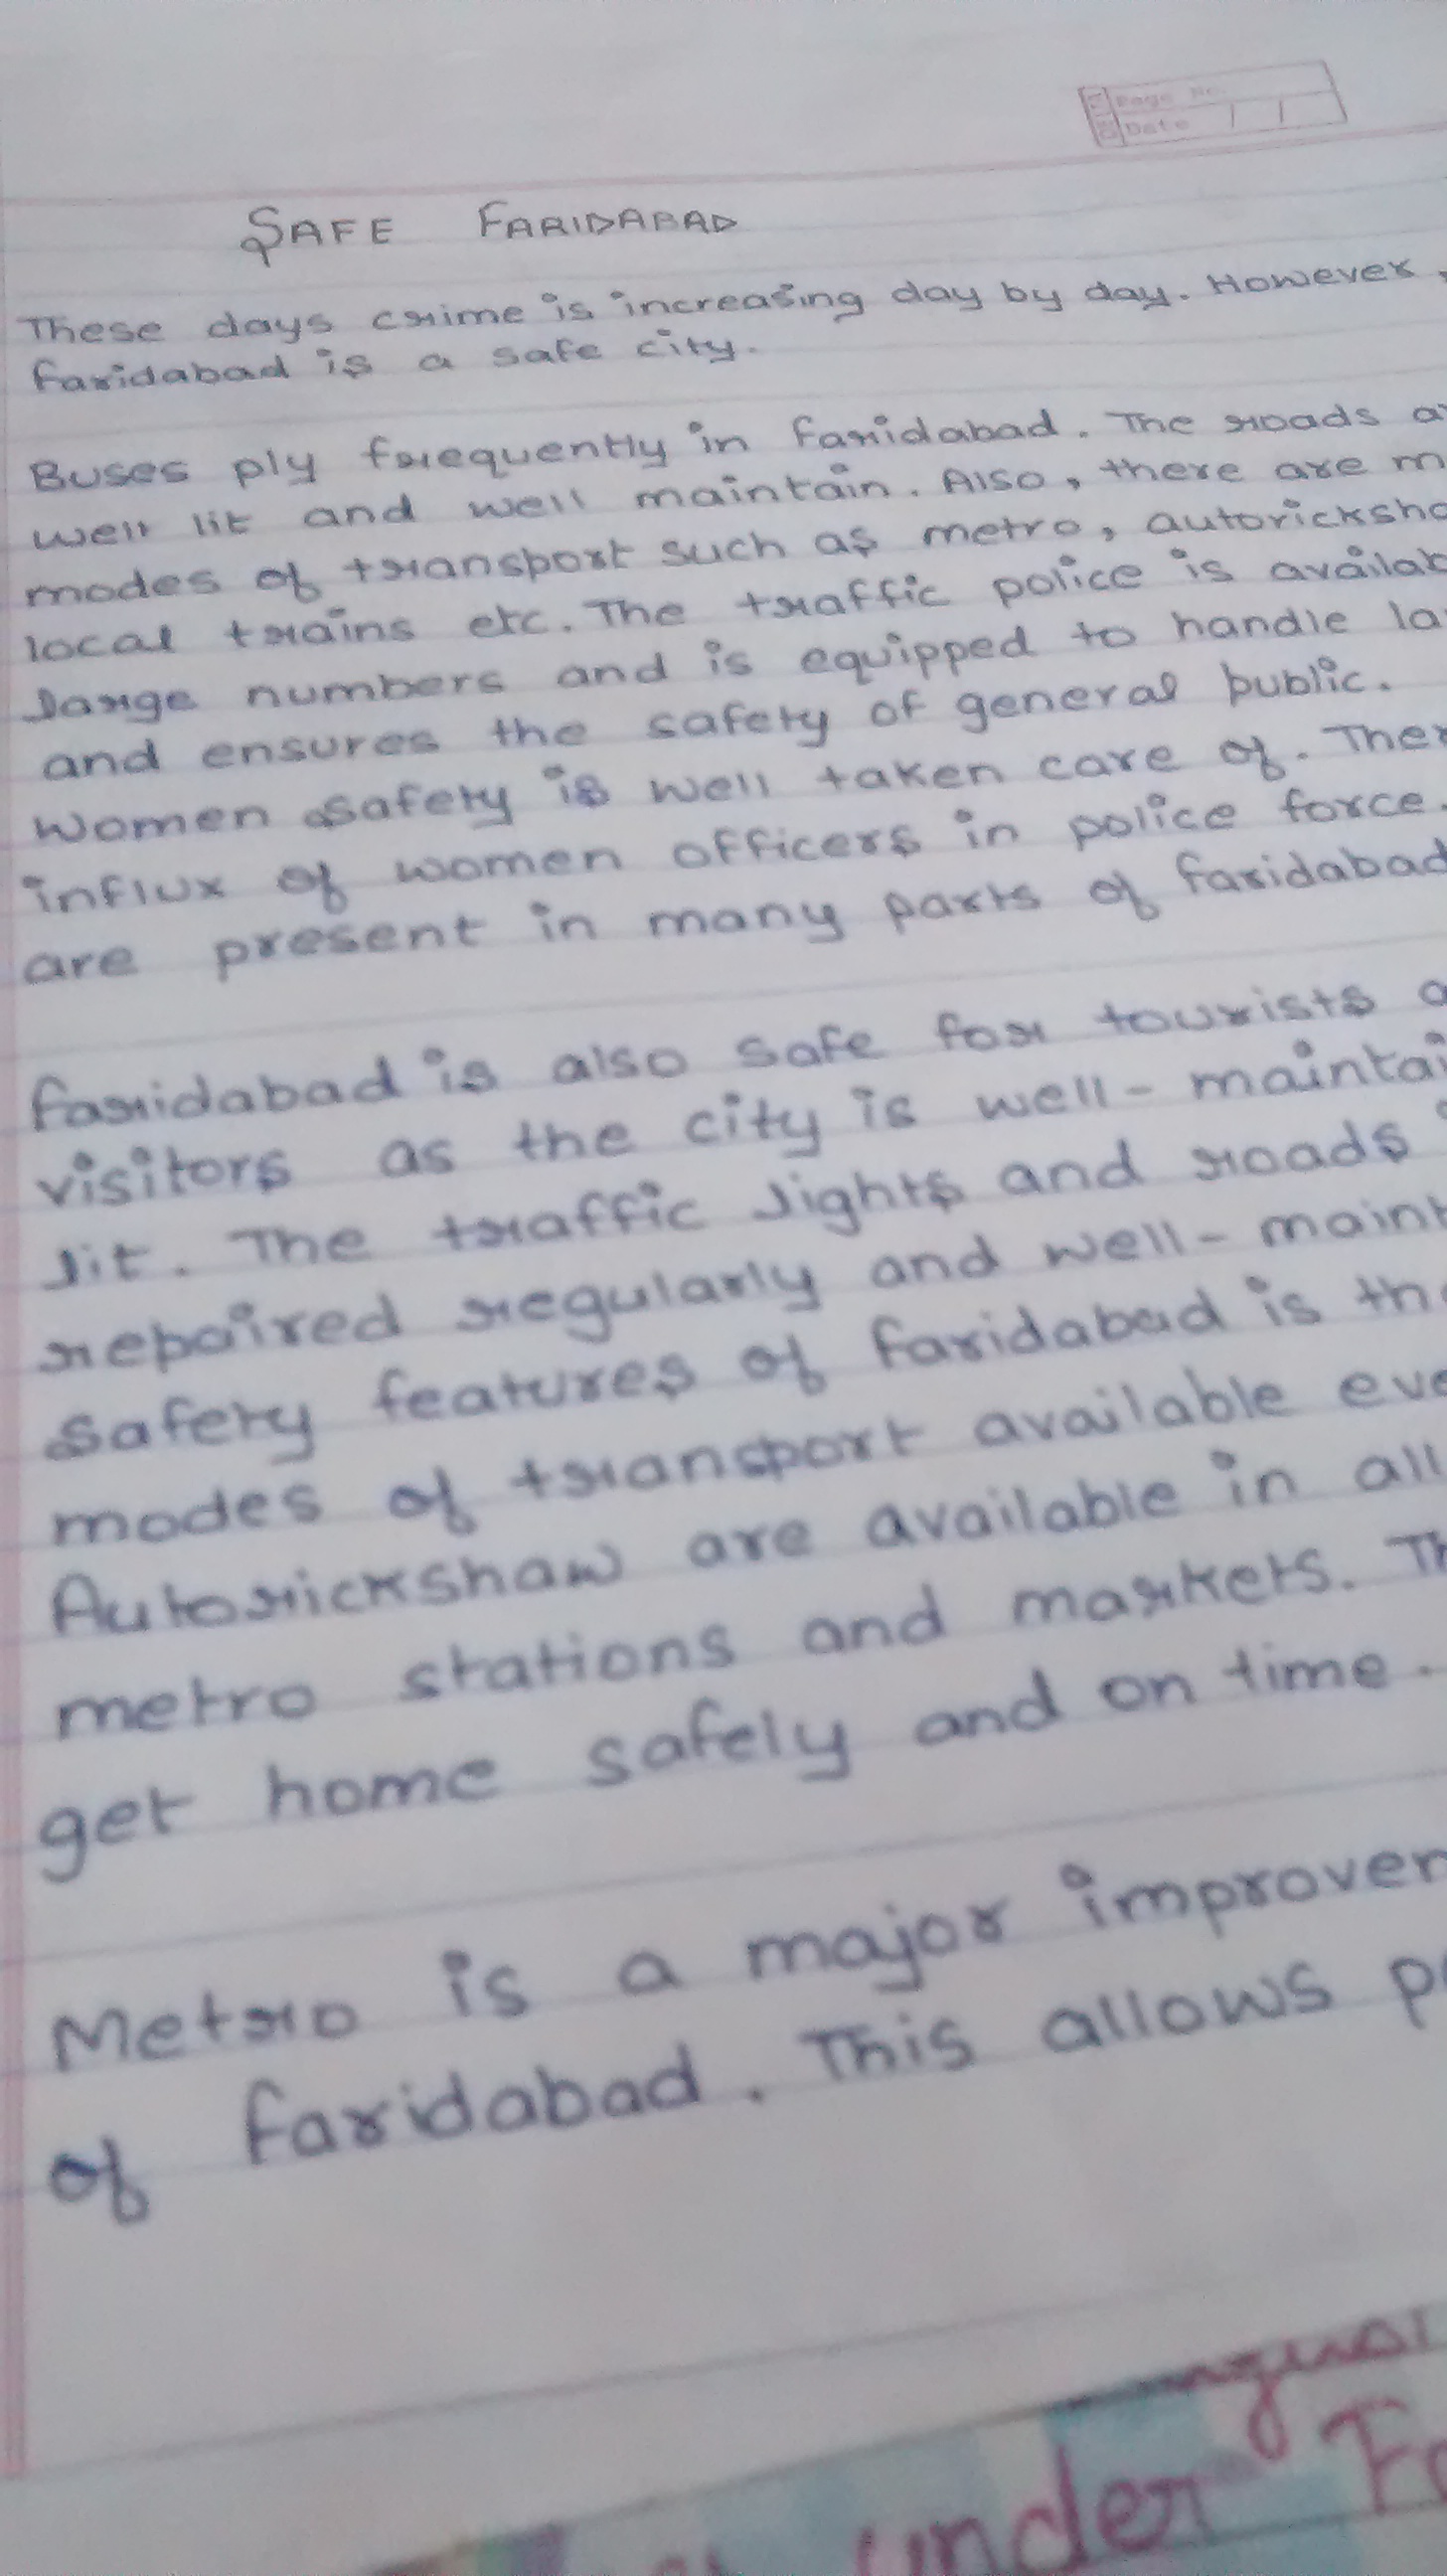 Page No.
Date / /
SAFE FARIDABAD
These days crime is increasing day by day. However,
faridabad is a safe city.
Buses ply frequently in faridabad. The roads
well lit and well maintain. Also, there are
modes of transport such as metro,
local trains etc. The traffic police is
large numbers and is equipped to handle
and ensures the safety of general public.
Women safety is well taken care of.
influx of women officers in police force.
are present in many parts of faridabad
faridabad is also safe for tourists
visitors as the city is well-
lit. The traffic lights and roads
repaired regularly and well-
safety features of faridabad is
modes of transport available
Autorickshaw are available in all
metro stations and markets.
get home safely and on time.
Metro is a major
of faridabad. This allows
under